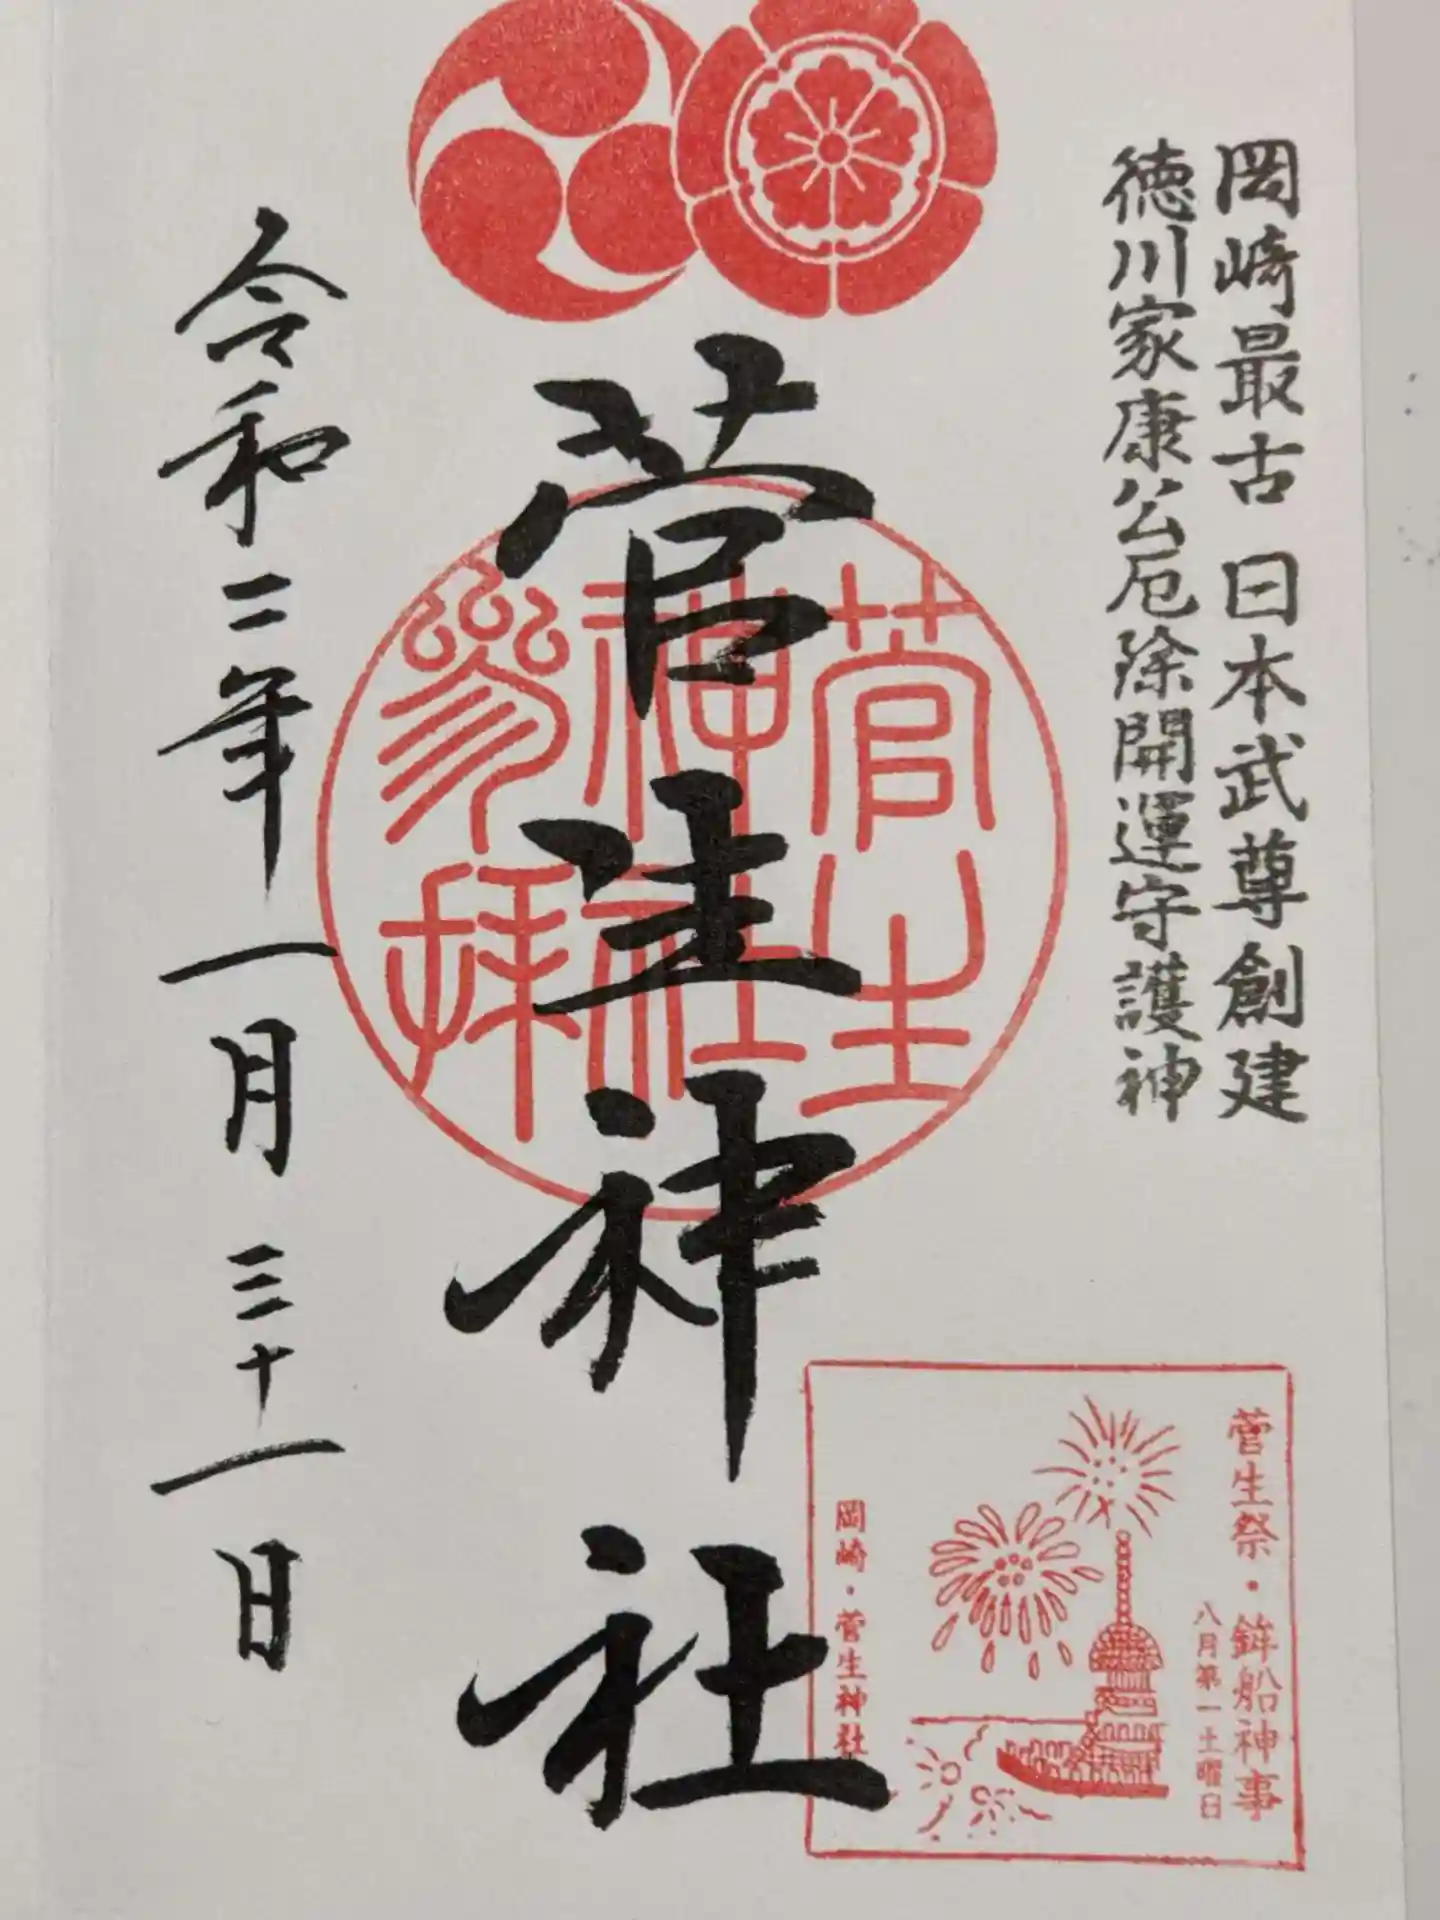 岡崎最古 日本武尊創建
徳川家康公厄除開運守護神
菅生神社
菅生
神社
参拝
令和二年一月三十一日
菅生祭・鉾船神事
八月第一土曜日
岡崎・菅生神社